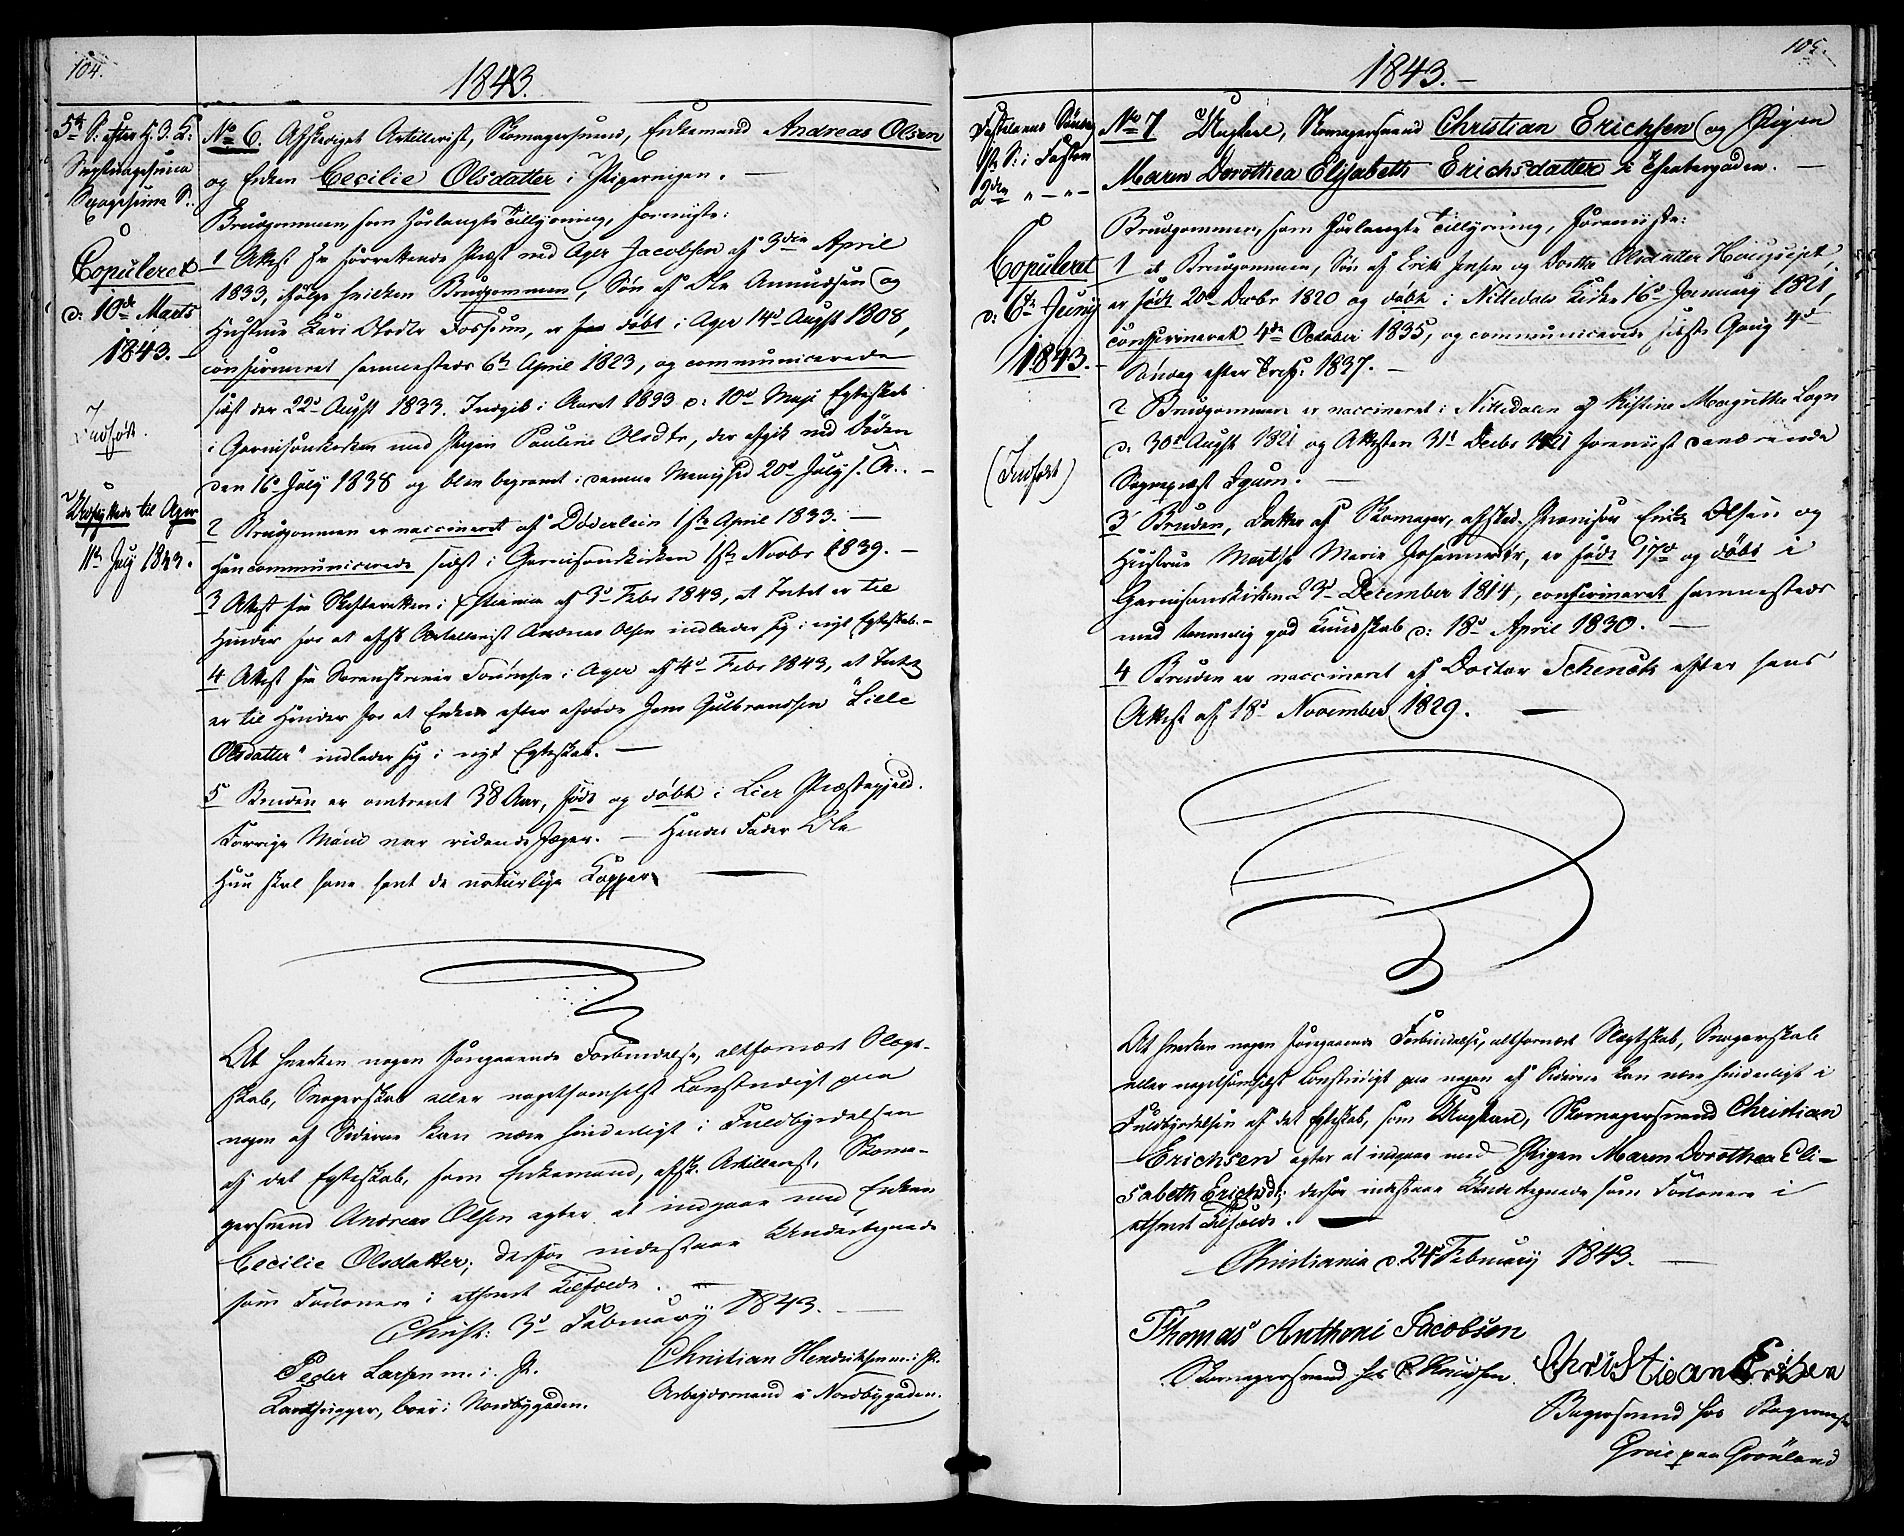 104.
1843.
5te S: efter H. 3. K:
Septuagesima
Sexagesima S:
Copuleret
d: 10de Marts
1843.
Indført.
Udflyttede til Ager
11te July 1843.
No 6. Afskediget Artillerist, Skomagersvend, Enkemand Andreas Olsen
og Enken Cecilie Olsdatter i Pipervigen. —
Brudgommen, som forlangte Tillysning, foreviiste:
1 Attest fra forrettende Præst ved Ager Jacobsen af 3die April
1833, ifølge hvilken Brudgommen, Søn af Ole Amundsen og
Hustrue Kari Olsdtr Fossum, er døbt i Ager 14de Augst 1808,
confirmeret sammesteds 6te April 1823, og communicerede
sidst den 22de Augst 1833. Indgik i Aaret 1833 d: 10de Maji Egteskab
i Garnisonskirken med Pigen Pauline Olsdtr, der afgik ved Døden
den 16de July 1838 og blev begravet i denne Menighed 20de July s. A. —
2 Brudgommen er vaccineret af Döderlein 1ste April 1833. —
Han communicerede sidst i Garnisonskirken 1ste Novbr 1839. —
3 Attest fra Skifteretten i Chstiania af 3de Febr 1843, at Intet er til
Hinder for at afsk. Artillerist Andreas Olsen indlader sig i nyt Egteskab. —
4 Attest fra Sorenskriver Sørensen i Ager af 4de Febr 1843, at Intet
er til Hinder for at Enken efter afdøde Jens Gulbrandsen "Lille
Olsdatter" indlader sig i nyt Egteskab. —
5 Bruden er omtrent 38 Aar, født og døbt i Lier Præstegjeld.
Forrige Mand var ridende Jæger. — Hendes Fader Ole
Hun skal have havt de naturlige Kopper. —
At hverken nogen foregaaende Forbindelse, altfornært Slægt-
skab, Svogerskab eller nogetsomhelst Lovstridigt paa
nogen af Siderne kan være hinderligt i Fuldbyrdelsen
af det Egteskab, som Enkemand, afsk. Artillerist, Skoma-
gersvend Andreas Olsen agter at indgaae med Enken
Cecilie Olsdatter; derfor indestaae Undertegnede
som Forlovere i ethvert Tilfælde. —
Christ: 3de February 1843. —
Peder Larsen m. i. P.
boer i Nordbygaden.
Christian Hendriksen m. i. P.
Arbejdsmand i Nordbygaden.
105.
1843. —
Fastelavns Søndag
1ste S: i Fasten
2den " — " — "
Copuleret
d: 6te Juny
1843. —
(Indført)
No 7 Ungkarl, Skomagersvend Christian Erichsen og Pigen
Maren Dorothea Elisabeth Erichsdatter i —
Brudgommen, som forlangte Tillysning, foreviiste:
1 at Brudgommen, Søn af Erik Jensen og Dorthe Olsdatter
er født 20de Decbr 1820 og døbt i Nittedals Kirke 16de January 1821,
confirmeret 4de October 1835, og communicerede sidste Gang 4de
Søndag efter Tref: 1837. —
2 Brudgommen er vaccineret i Nittedalen af Kistine Margrethe Lagn
d. 30te Augst 1821 og Attesten 31te Decbr 1821 foreviist daværende
Sognepræst Igum. —
3 Bruden, Datter af Skomager, afsked. Erik Olsen og
Hustrue Marthe Marie Johannesdtr, er født 17de og døbt i
Garnisonskirken 27de December 1814, confirmeret sammesteds
med temmelig god Kundskab d: 18de April 1830. —
4 Bruden er vaccineret af Doctor Schenck efter hans
Attest af 18de November 1829. —
At hverken nogen foregaaende Forbindelse, altfornært Slægtskab, Svogerskab
eller nogetsomhelst Lovstridigt paa nogen af Siderne kan være hinderligt i
Fuldbyrdelsen af det Egteskab, som Ungkarl, Skomagersvend Christian
Erichsen agter at indgaae med Pigen Maren Dorothea Eli-
sabeth Erichsdtr; derfor indestaae Undertegnede som Forlovere i
ethvert Tilfælde. —
Christiania d. 24de February 1843. —
Thomas Anthoni Jacobsen
Skomagersvend hos Knudsen
Christian Erichsen
Bagersvend hos Bagermester
paa Grönland